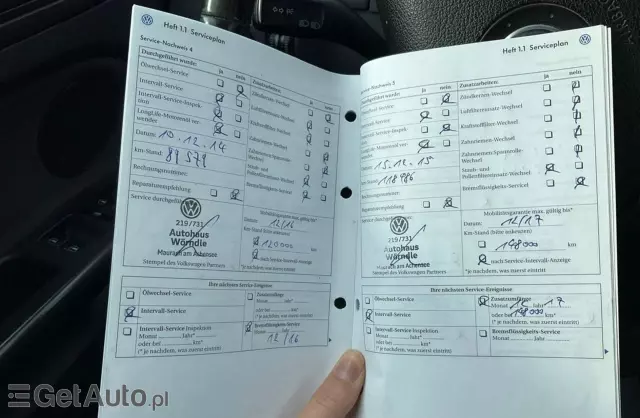 Heft 1.1 Serviceplan
Service-Nachweis 4
Durchgeführt wurde: ja nein
Ölwechsel-Service
Intervall-Service
Intervall-Service-Inspek-
tion
LongLife-Motorenöl ver-
wendet
Datum: 10.12.14
km-Stand: 89 579
Rechnungsnummer:
Reparaturempfehlung
Service durchgeführt:
219/731
Autohaus
Wörndle
Maurach am Achensee
Stempel des Volkswagen Partners
Zusatzarbeiten: ja nein
Zündkerzen-Wechsel
Luftfiltereinsatz-Wechsel
Kraftstofffilter-Wechsel
Zahnriemen-Wechsel
Zahnriemen-Spannrolle-
Wechsel
Staub- und
Pollenfiltereinsatz-Wechsel
Bremsflüssigkeits-Service
Mobilitätsgarantie max. gültig bis*
Datum: 12/16
Km-Stand (bitte ankreuzen)
120000 km
nach Service-Intervall-Anzeige
(*je nachdem, was zuerst eintritt)
Ihre nächsten Service-Ereignisse
Ölwechsel-Service
Intervall-Service
Intervall-Service Inspektion
Monat Jahr
oder bei km*
(*je nachdem, was zuerst eintritt)
Zusatzumfänge
Monat Jahr
oder bei km*
(*je nachdem, was zuerst eintritt)
Bremsflüssigkeits-Service
12/16
Heft 1.1 Serviceplan
Service-Nachweis 5
Durchgeführt wurde: ja nein
Ölwechsel-Service
Intervall-Service
Intervall-Service-Inspek-
LongLife-Motorenöl ver-
Datum: 15.12.15
km-Stand: 118986
Rechnungsnummer:
Reparaturempfehlung
Service durchgeführt:
219/731
Autohaus
Wörndle
Maurach am Achensee
Stempel des Volkswagen Partners
Zusatzarbeiten: ja nein
Zündkerzen-Wechsel
Luftfiltereinsatz-Wechsel
Kraftstofffilter-Wechsel
Zahnriemen-Wechsel
Zahnriemen-Spannrolle-
Wechsel
Staub- und
Pollenfiltereinsatz-Wechsel
Bremsflüssigkeits-Service
Mobilitätsgarantie max. gültig bis*
Datum: 12/17
Km-Stand (bitte ankreuzen)
148000 km
nach Service-Intervall-Anzeige
(*je nachdem, was zuerst eintritt)
Ihre nächsten Service-Ereignisse
Ölwechsel-Service
Intervall-Service
Intervall-Service Inspektion
Monat Jahr
oder bei km*
(*je nachdem, was zuerst eintritt)
Zusatzumfänge
Monat 12 Jahr 17
oder bei 148000 km*
(*je nachdem, was zuerst eintritt)
Bremsflüssigkeits-Service
GetAuto.pl